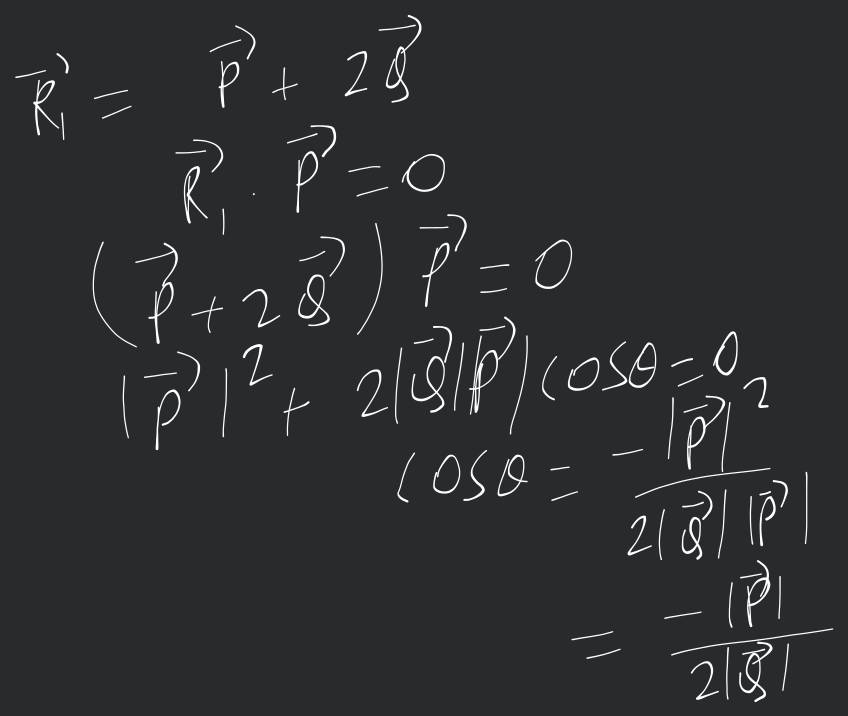 $\vec{R}_1 = \vec{P} + 2\vec{Q}$
$\vec{R}_1 \cdot \vec{P} = 0$
$(\vec{P} + 2\vec{Q}) \vec{P} = 0$
$|\vec{P}|^2 + 2|\vec{Q}||\vec{P}| \cos\theta = 0$
$\cos\theta = \frac{-|\vec{P}|^2}{2|\vec{Q}||\vec{P}|}$
$= \frac{-|\vec{P}|}{2|\vec{Q}|}$